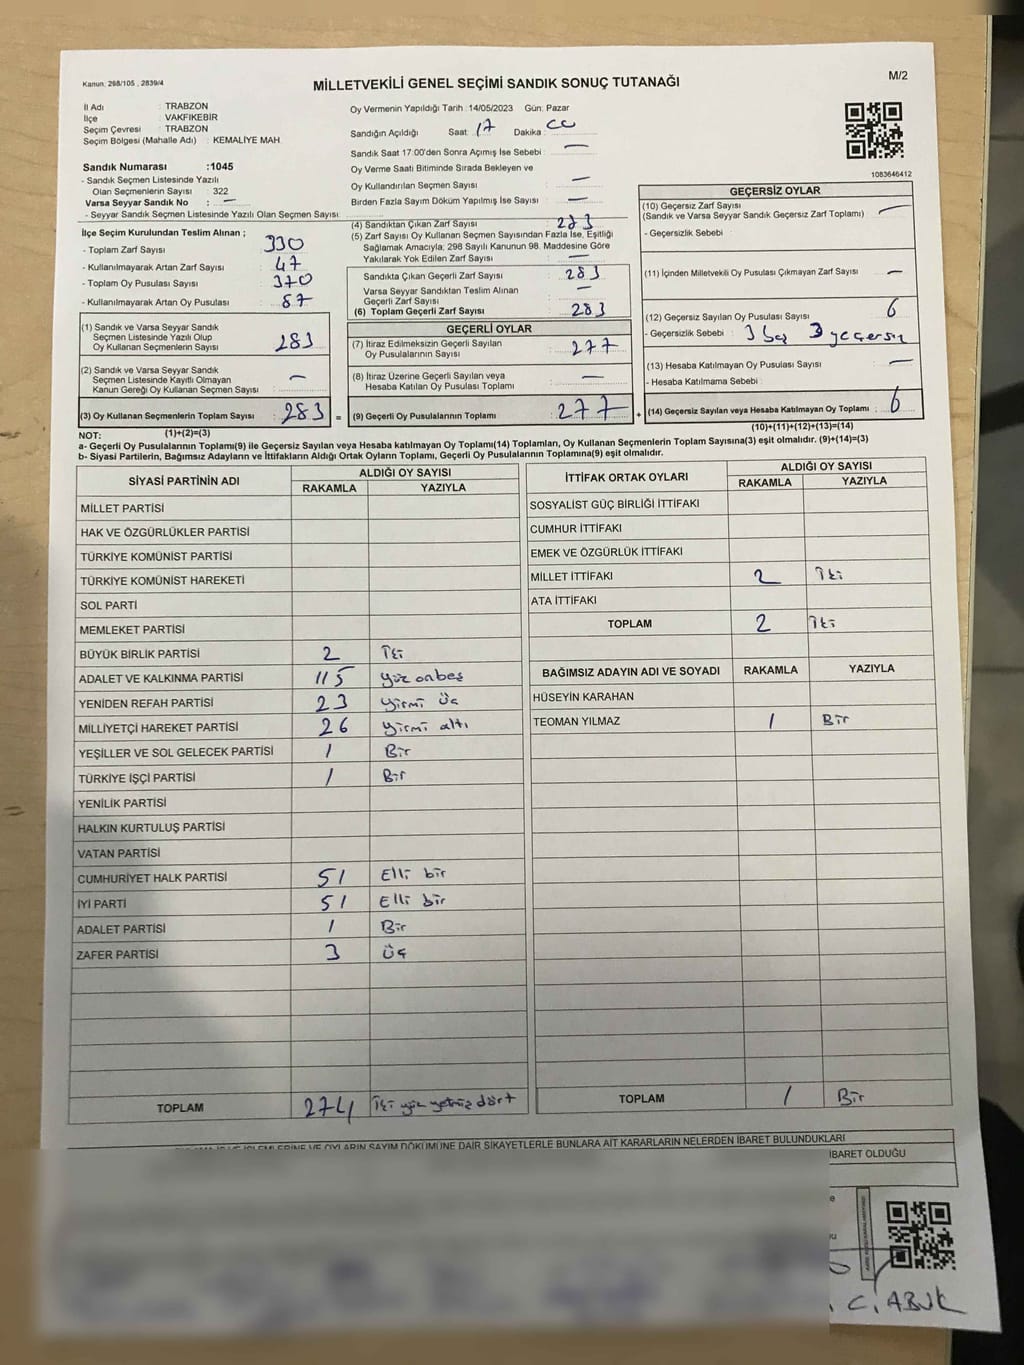 Kanun: 298/105 , 2839/4
MİLLETVEKİLİ GENEL SEÇİMİ SANDIK SONUÇ TUTANAĞI
M/2
İl Adı : TRABZON
İlçe : VAKFIKEBİR
Seçim Çevresi : TRABZON
Seçim Bölgesi (Mahalle Adı) : KEMALİYE MAH
Sandık Numarası :1045
- Sandık Seçmen Listesinde Yazılı
Olan Seçmenlerin Sayısı : 322
Varsa Seyyar Sandık No : —
- Seyyar Sandık Seçmen Listesinde Yazılı Olan Seçmen Sayısı:
Oy Vermenin Yapıldığı Tarih :14/05/2023 Gün: Pazar
Sandığın Açıldığı Saat: 17 Dakika:
Sandık Saat 17:00'den Sonra Açımış İse Sebebi : —
Oy Verme Saati Bitiminde Sırada Bekleyen ve
Oy Kullandırılan Seçmen Sayısı : —
Birden Fazla Sayım Döküm Yapılmış İse Sayısı : —
1083646412
İlçe Seçim Kurulundan Teslim Alınan ;
- Toplam Zarf Sayısı : 330
- Kullanılmayarak Artan Zarf Sayısı : 47
- Toplam Oy Pusulası Sayısı : 370
- Kullanılmayarak Artan Oy Pusulası : 87
(1) Sandık ve Varsa Seyyar Sandık
Seçmen Listesinde Yazılı Olup
Oy Kullanan Seçmenlerin Sayısı : 283
(2) Sandık ve Varsa Seyyar Sandık
Seçmen Listesinde Kayıtlı Olmayan
Kanun Gereği Oy Kullanan Seçmen Sayısı : —
(3) Oy Kullanan Seçmenlerin Toplam Sayısı : 283 =
(1)+(2)=(3)
(4) Sandıktan Çıkan Zarf Sayısı : 283
(5) Zarf Sayısı Oy Kullanan Seçmen Sayısından Fazla İse, Eşitliği
Sağlamak Amacıyla; 298 Sayılı Kanunun 98. Maddesine Göre
Yakılarak Yok Edilen Zarf Sayısı : —
Sandıkta Çıkan Geçerli Zarf Sayısı : 283
Varsa Seyyar Sandıktan Teslim Alınan
Geçerli Zarf Sayısı : —
(6) Toplam Geçerli Zarf Sayısı : 283
GEÇERLİ OYLAR
(7) İtiraz Edilmeksizin Geçerli Sayılan
Oy Pusulalarının Sayısı : 277
(8) İtiraz Üzerine Geçerli Sayılan veya
Hesaba Katılan Oy Pusulası Toplamı : —
(9) Geçerli Oy Pusulalarının Toplamı : 277 +
GEÇERSİZ OYLAR
(10) Geçersiz Zarf Sayısı
(Sandık ve Varsa Seyyar Sandık Geçersiz Zarf Toplamı) : —
- Geçersizlik Sebebi :
(11) İçinden Milletvekili Oy Pusulası Çıkmayan Zarf Sayısı : —
(12) Geçersiz Sayılan Oy Pusulası Sayısı : 6
- Geçersizlik Sebebi : 3 boş 3 geçersiz
(13) Hesaba Katılmayan Oy Pusulası Sayısı : —
- Hesaba Katılmama Sebebi :
(14) Geçersiz Sayılan veya Hesaba Katılmayan Oy Toplamı : 6
(10)+(11)+(12)+(13)=(14)
NOT:
a- Geçerli Oy Pusulalarının Toplamı(9) ile Geçersiz Sayılan veya Hesaba katılmayan Oy Toplamı(14) Toplamları, Oy Kullanan Seçmenlerin Toplam Sayısına(3) eşit olmalıdır. (9)+(14)=(3)
b- Siyasi Partilerin, Bağımsız Adayların ve İttifakların Aldığı Ortak Oyların Toplamı, Geçerli Oy Pusulalarının Toplamına(9) eşit olmalıdır.
SİYASİ PARTİNİN ADI ALDIĞI OY SAYISI
RAKAMLA YAZIYLA
MİLLET PARTİSİ
HAK VE ÖZGÜRLÜKLER PARTİSİ
TÜRKİYE KOMÜNİST PARTİSİ
TÜRKİYE KOMÜNİST HAREKETİ
SOL PARTİ
MEMLEKET PARTİSİ
BÜYÜK BİRLİK PARTİSİ 2 İki
ADALET VE KALKINMA PARTİSİ 115 yüz onbeş
YENİDEN REFAH PARTİSİ 23 yirmi üç
MİLLİYETÇİ HAREKET PARTİSİ 26 yirmi altı
YEŞİLLER VE SOL GELECEK PARTİSİ 1 Bir
TÜRKİYE İŞÇİ PARTİSİ 1 Bir
YENİLİK PARTİSİ
HALKIN KURTULUŞ PARTİSİ
VATAN PARTİSİ
CUMHURİYET HALK PARTİSİ 51 Elli bir
İYİ PARTİ 51 Elli bir
ADALET PARTİSİ 1 Bir
ZAFER PARTİSİ 3 üç
TOPLAM 274 İki yüz yetmiş dört
İTTİFAK ORTAK OYLARI ALDIĞI OY SAYISI
RAKAMLA YAZIYLA
SOSYALİST GÜÇ BİRLİĞİ İTTİFAKI
CUMHUR İTTİFAKI
EMEK VE ÖZGÜRLÜK İTTİFAKI
MİLLET İTTİFAKI 2 İki
ATA İTTİFAKI
TOPLAM 2 İki
BAĞIMSIZ ADAYIN ADI VE SOYADI RAKAMLA YAZIYLA
HÜSEYİN KARAHAN
TEOMAN YILMAZ 1 Bir
TOPLAM 1 Bir
OYLARIN SAYIM DÖKÜMÜNE DAİR ŞİKAYETLERLE BUNLARA AİT KARARLARIN NELERDEN İBARET BULUNDUKLARI
İBARET OLDUĞU
C. ABUK